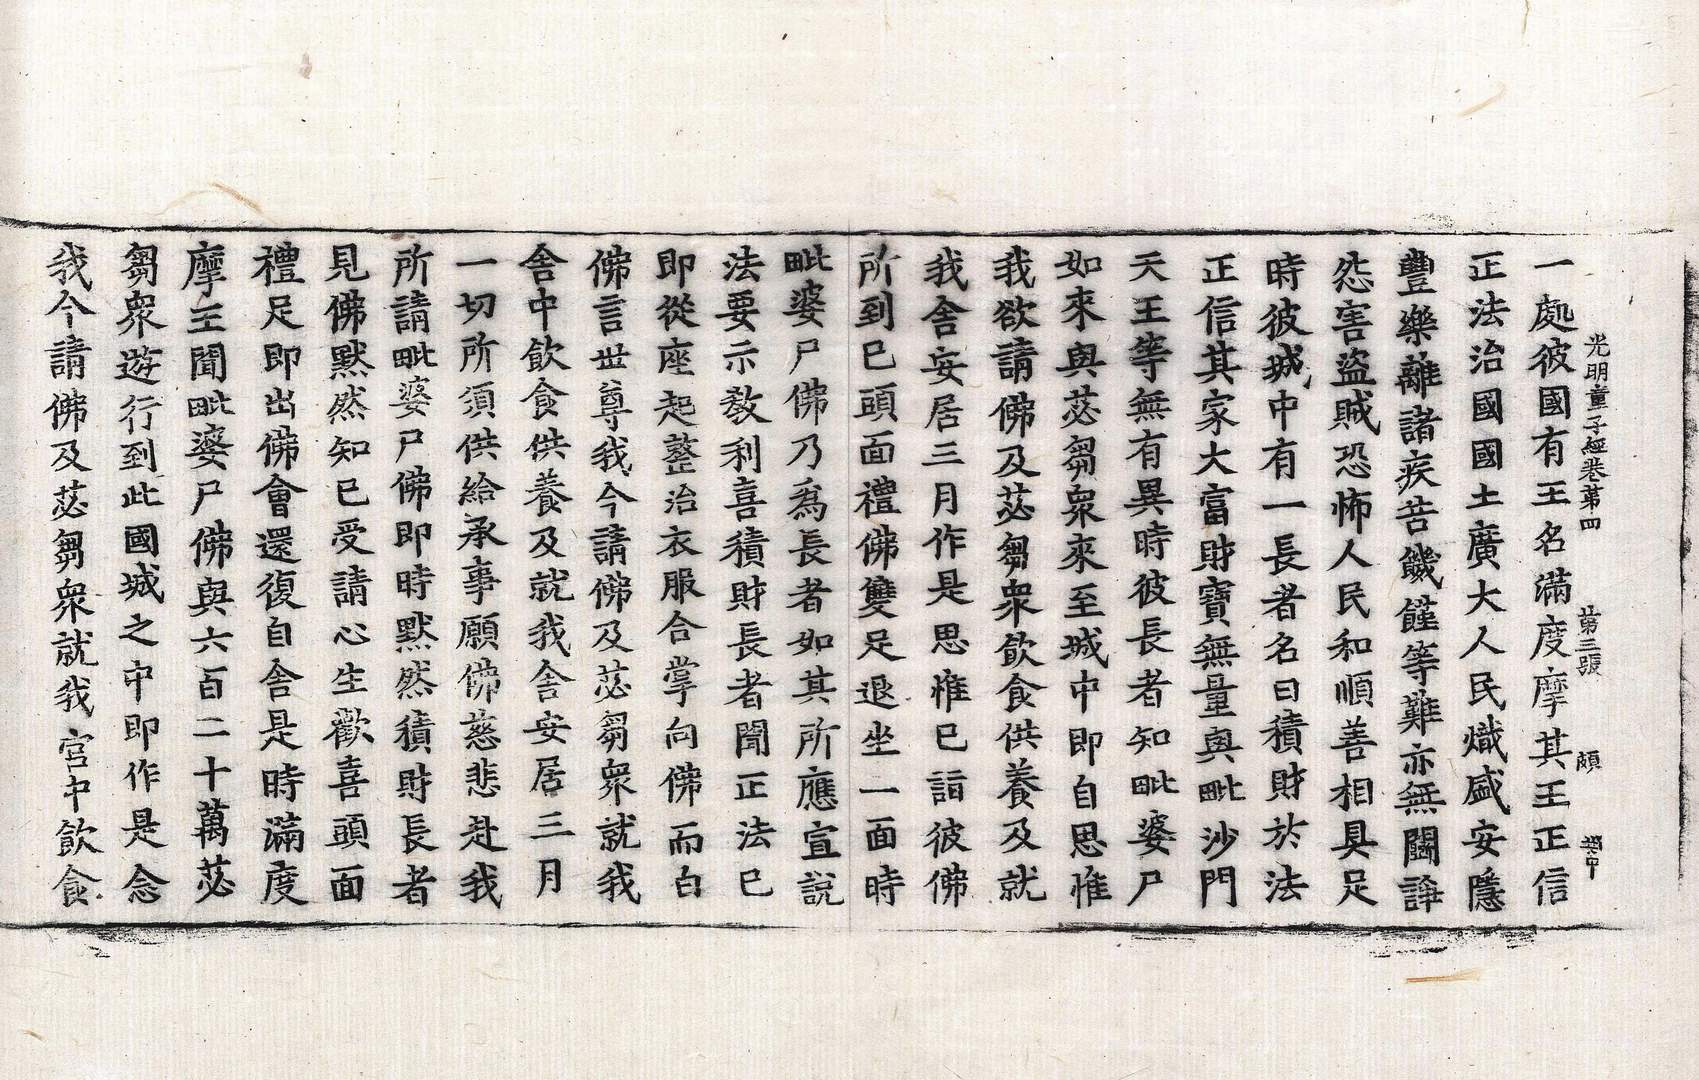 光明童子經卷第四 第三張 頗
一處彼國有王名滿度摩其王正信
正法治國國土廣大人民熾盛安隱
豐樂離諸疾苦饑饉等難亦無鬪諍
怨害盜賊恐怖人民和順善相具足
時彼城中有一長者名曰積財於法
正信其家大富財寶無量與毗沙門
天王等無有異時彼長者知毗婆尸
如來與苾芻衆來至城中即自思惟
我欲請佛及苾芻衆飲食供養及就
我舍安居三月作是思惟已詣彼佛
所到已頭面禮佛雙足退坐一面時
毗婆尸佛乃為長者如其所應宣說
法要示教利喜積財長者聞正法已
即從座起整治衣服合掌向佛而白
佛言世尊我今請佛及苾芻衆就我
舍中飲食供養及就我舍安居三月
一切所須供給承事願佛慈悲赴我
所請毗婆尸佛即時默然積財長者
見佛默然知已受請心生歡喜頭面
禮足即出佛會還復自舍是時滿度
摩王聞毗婆尸佛與六百二十萬苾
芻衆遊行到此國城之中即作是念
我今請佛及苾芻衆就我宮中飲食